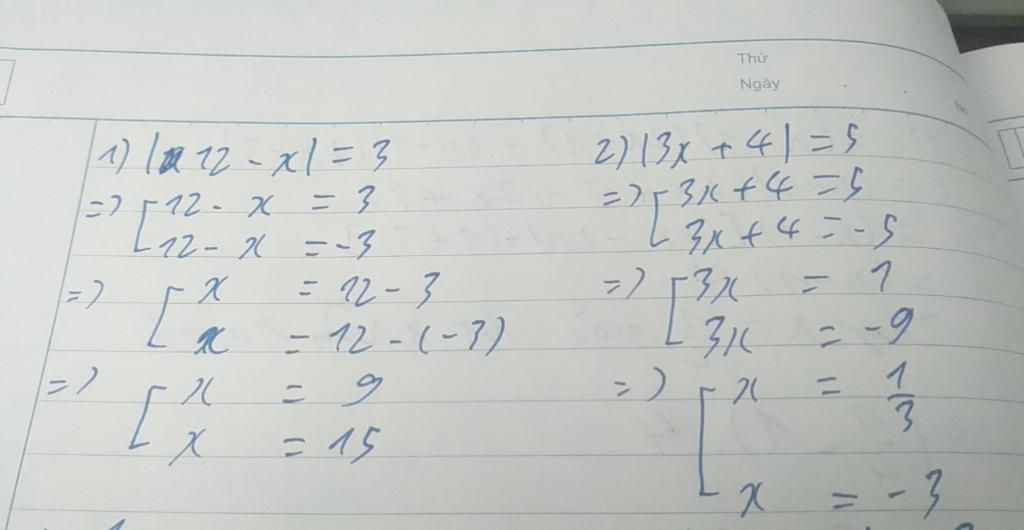 Thứ
Ngày
1) |12 - x| = 3
=> [12 - x = 3
12 - x = -3
=> [x = 12 - 3
x = 12 - (-3)
=> [x = 9
x = 15
2) |3x + 4| = 5
=> [3x + 4 = 5
3x + 4 = -5
=> [3x = 1
3x = -9
=> [x = 1/3
x = -3